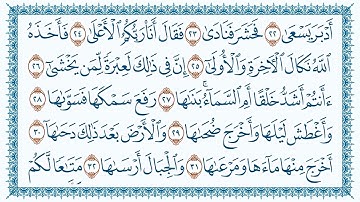 أَدْبَرَ يَسْعَىٰ ٢٢ فَحَشَرَ فَنَادَىٰ ٢٣ فَقَالَ أَنَا۠ رَبُّكُمُ ٱلْأَعْلَىٰ ٢٤ فَأَخَذَهُ
ٱللَّهُ نَكَالَ ٱلْءَاخِرَةِ وَٱلْأُولَىٰٓ ٢٥ إِنَّ فِى ذَٰلِكَ لَعِبْرَةً لِّمَن يَخْشَىٰٓ ٢٦
ءَأَنتُمْ أَشَدُّ خَلْقًا أَمِ ٱلسَّمَآءُ ۚ بَنَىٰهَا ٢٧ رَفَعَ سَمْكَهَا فَسَوَّىٰهَا ٢٨
وَأَغْطَشَ لَيْلَهَا وَأَخْرَجَ ضُحَىٰهَا ٢٩ وَٱلْأَرْضَ بَعْدَ ذَٰلِكَ دَحَىٰهَآ ٣٠
أَخْرَجَ مِنْهَا مَآءَهَا وَمَرْعَىٰهَا ٣١ وَٱلْجِبَالَ أَرْسَىٰهَا ٣٢ مَتَٰعًا لَّكُمْ